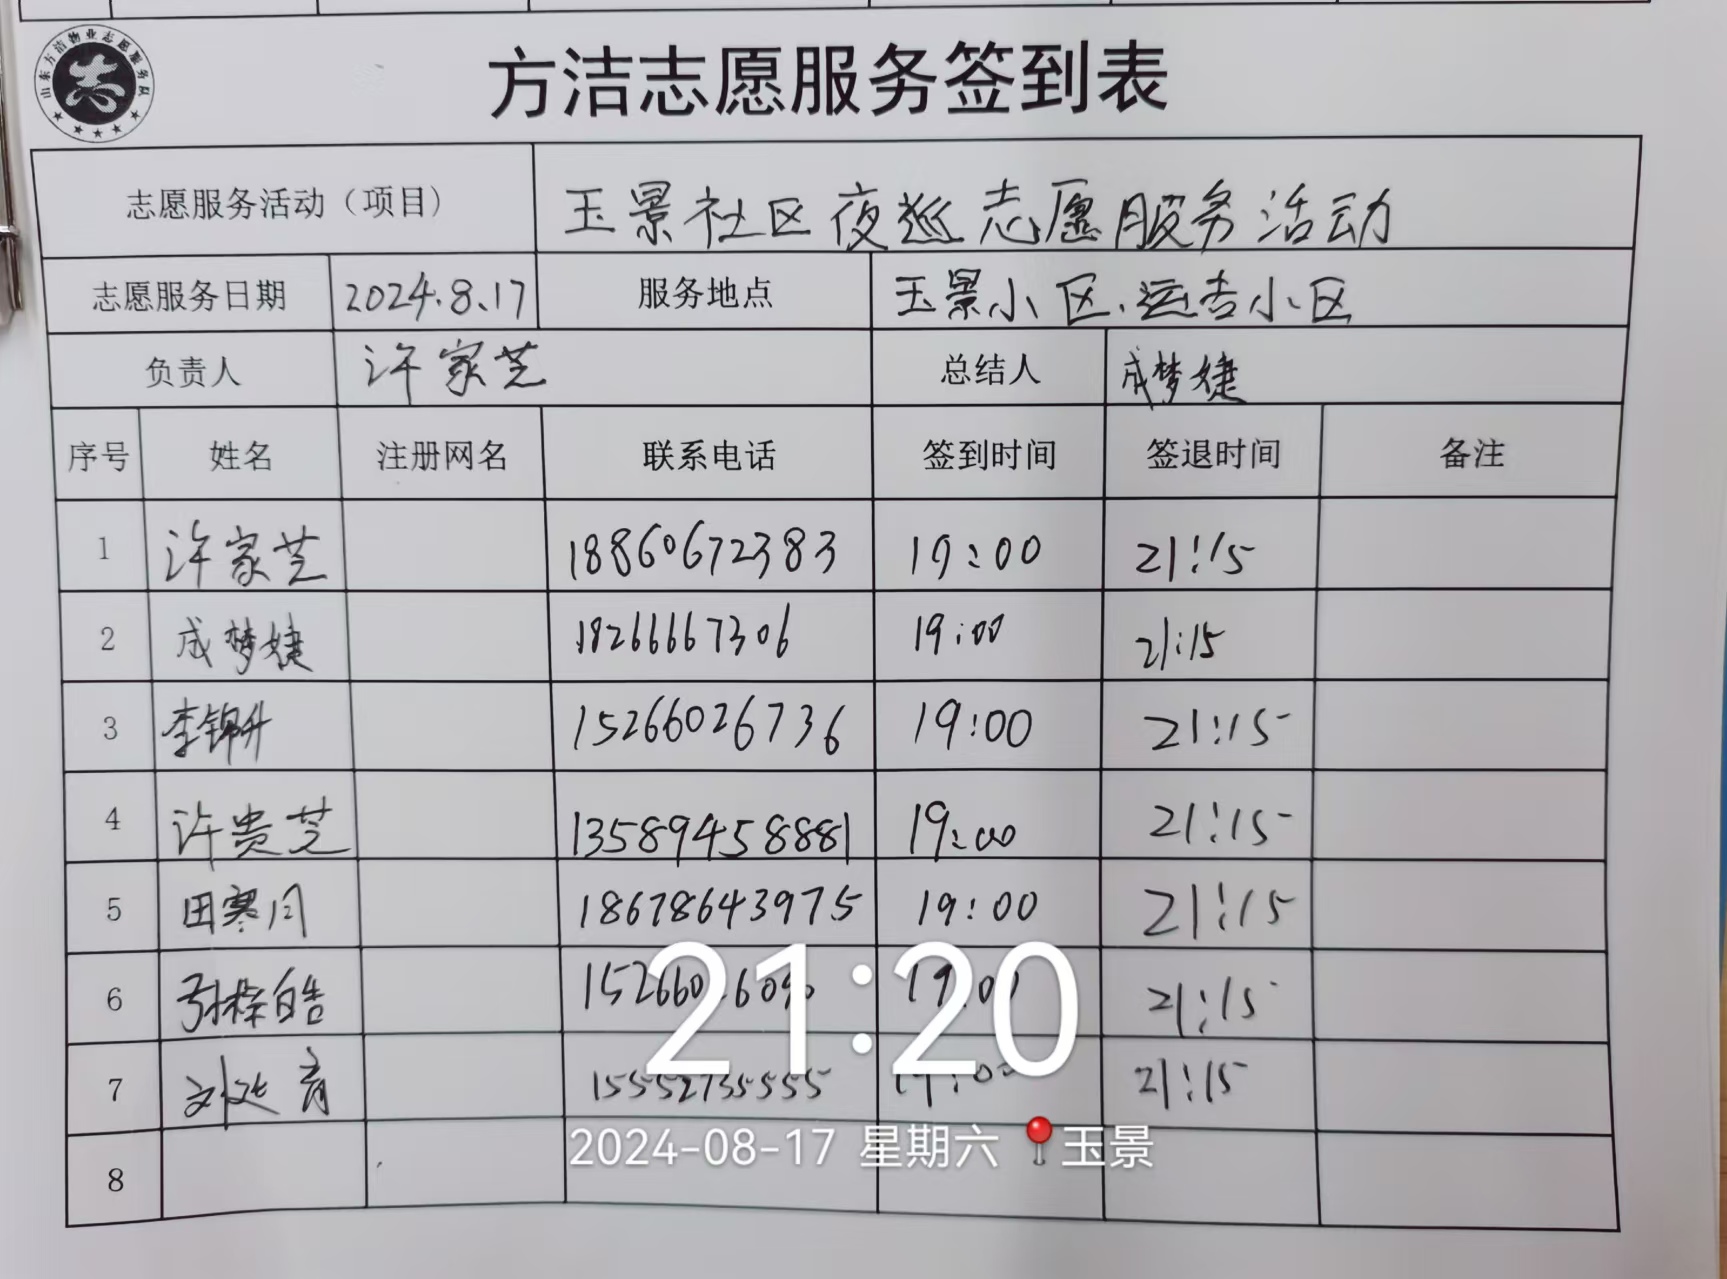 山东方洁物业志愿服务队
志
方洁志愿服务签到表
志愿服务活动（项目） 玉景社区夜巡志愿服务活动
志愿服务日期 2024.8.17 服务地点 玉景小区、运吉小区
负责人 许家芝 总结人 成梦婕
序号 姓名 注册网名 联系电话 签到时间 签退时间 备注
1 许家芝 18860672383 19:00 21:15
2 成梦婕 18266667306 19:00 21:15
3 李锦升 15266026736 19:00 21:15
4 许贵芝 13589458881 19:00 21:15
5 田寒月 18678643975 19:00 21:15
6 19:00 21:15
7 15552735555 19:00 21:15
8
21:20
2024-08-17 星期六 玉景